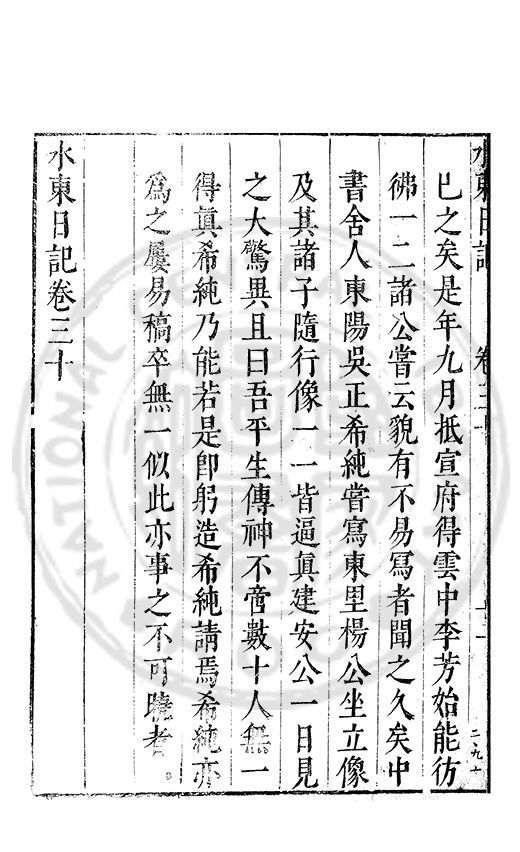 水東日記 卷三十
已之矣是年九月抵宣府得雲中李芳始能彷
彿一二諸公嘗云貌有不易冩者聞之久矣中
書舍人東陽吳正希純嘗寫東里楊公坐立像
及其諸子隨行像一一皆逼眞建安公一日見
之大驚異且曰吾平生傳神不啻數十人無一
得眞希純乃能若是卽躬造希純請焉希純亦
爲之屢易稿卒無一似此亦事之不可曉者
水東日記卷三十